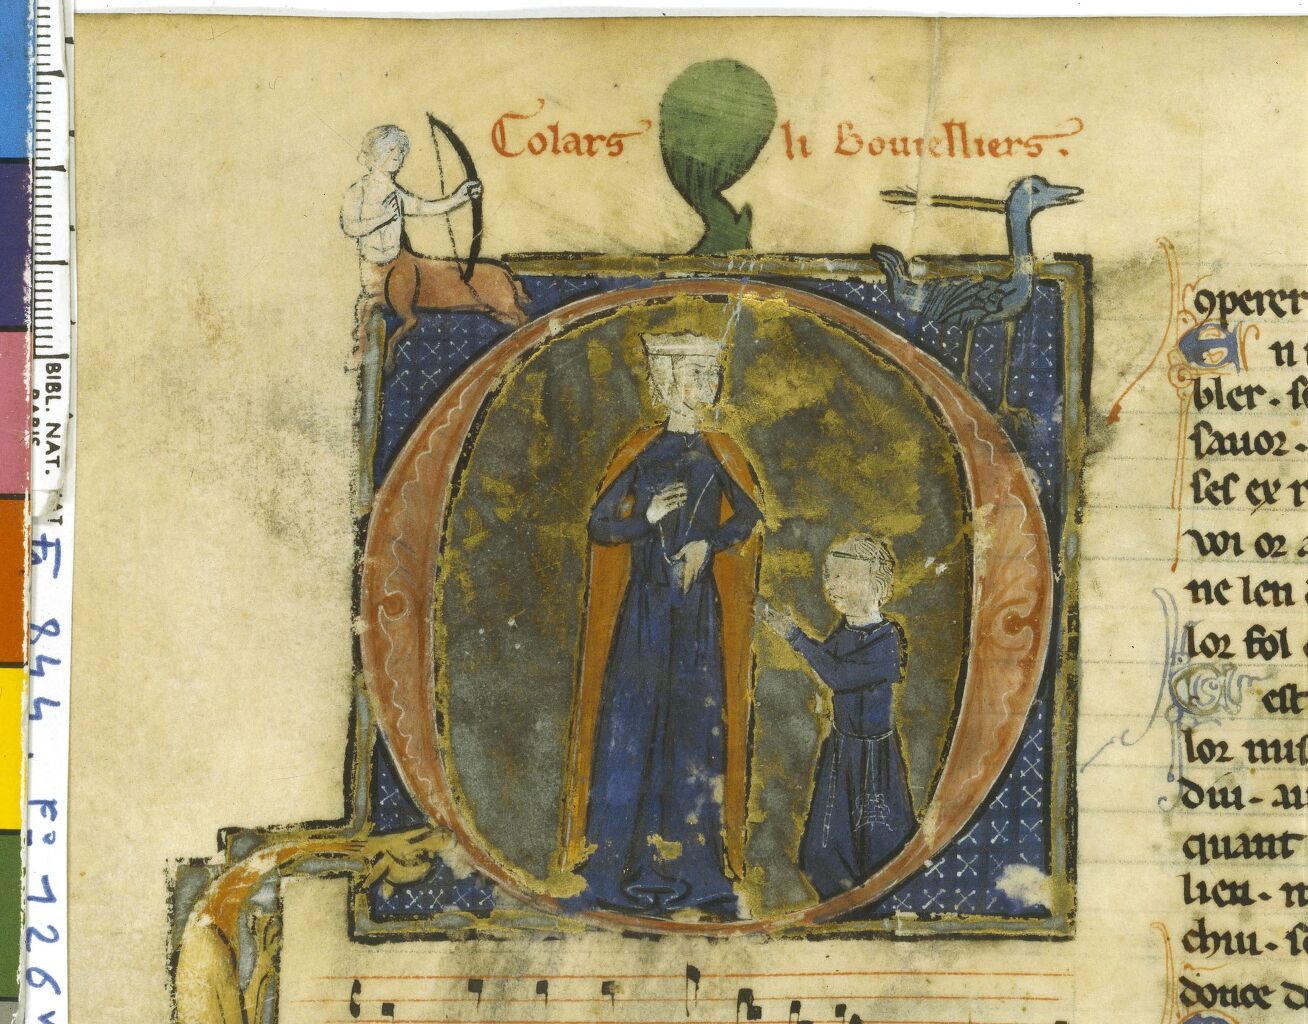 Colars li bouteilliers.
BIBL. NAT.
PARIS
Fr 844. Fo 126 v
n
bler.
sauor.
ses ex
uoi or a
ne len
lor fol
est
lor mis
diu. au
quant
lieu.
chiu.
douce d